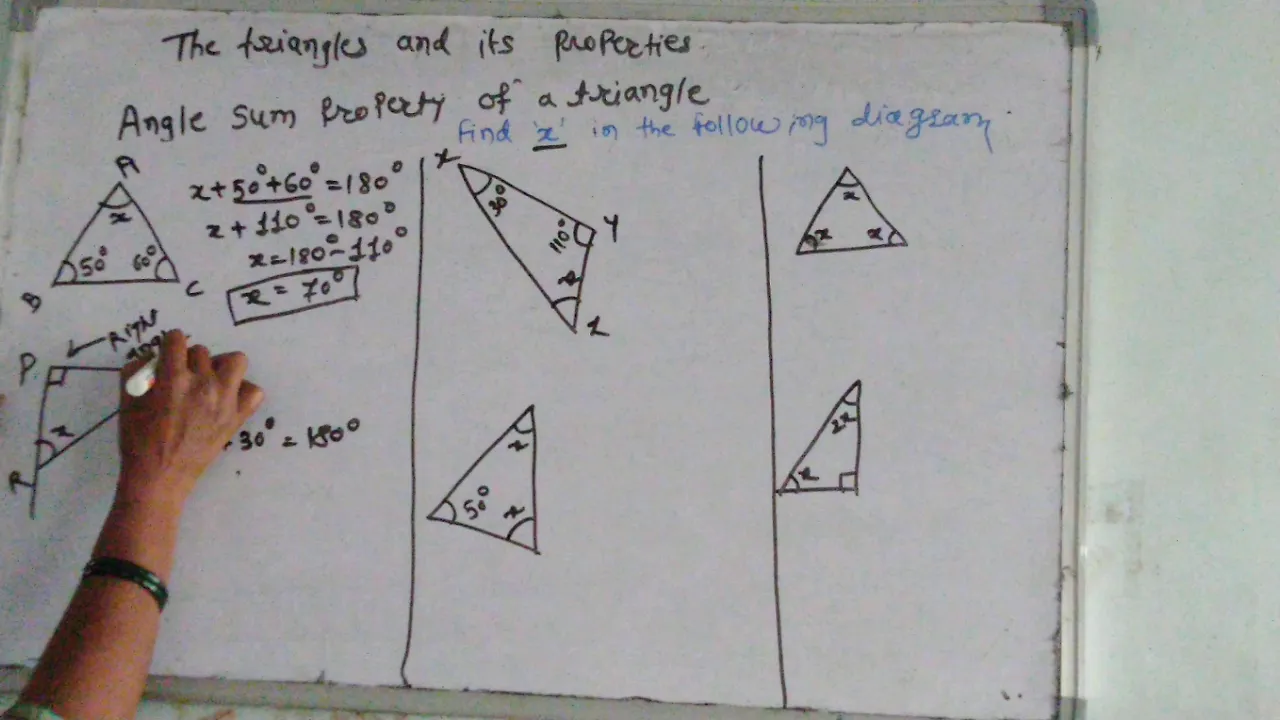 The triangles and its properties.
Angle sum property of a triangle
Find 'x' in the following diagram.
A
x
50°
60°
B
C
x + 50° + 60° = 180°
x + 110° = 180°
x = 180° - 110°
x = 70°
P
Right
x
30° = 180°
X
30°
110°
Y
x
Z
x
50°
x
x
x
x
2x
x